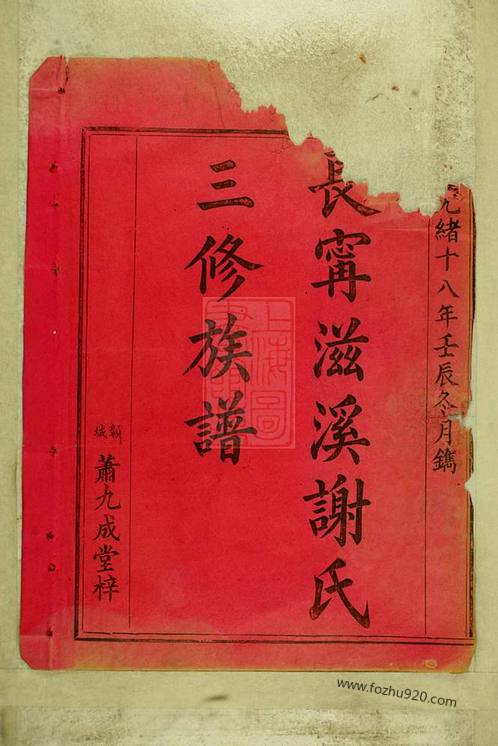 光緒十八年壬辰冬月鐫
長甯滋溪謝氏
三修族譜
蕭九成堂梓
www.fozhu920.com